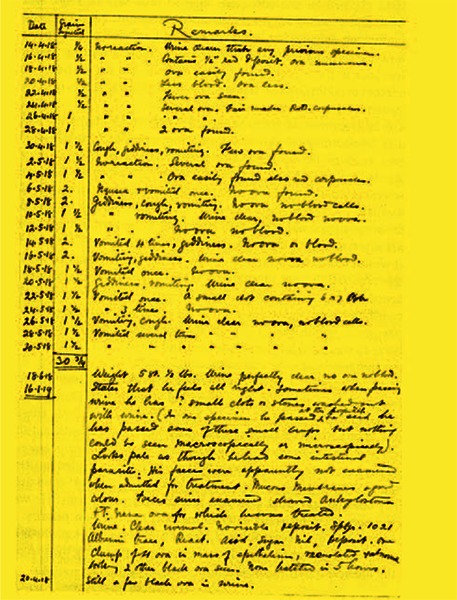 Date Grains Injected Remarks.
14-4-18 ½ No reaction. Urine clearer than any previous specimen.
16-4-18 ½ " " Contains ½" red deposit. ova numerous.
18-4-18 ½ " " ova easily found.
20-4-18 ½ " " Less blood. ova less.
22-4-18 ½ " " Fewer ova seen.
24-4-18 ½ " " Several ova. Fair number Red corpuscles.
26-4-18 1 " " " "
28-4-18 1 " " 2 ova found.
30-4-18 1 ½ Cough, giddiness, vomiting. Few ova found.
2-5-18 1 ½ No reaction. Several ova found.
4-5-18 1 ½ " " Ova easily found also red corpuscles.
6-5-18 2. vomited once. No ova found.
8-5-18 2. Giddiness, cough, vomiting. No ova no blood cells.
10-5-18 1 ½ " vomiting. Urine clear, no blood no ova.
12-5-18 1 ½ " " No ova no blood.
14-5-18 2. Vomited 4 times, giddiness. No ova or blood.
16-5-18 2. Vomiting, giddiness. Urine clear no ova no blood.
18-5-18 1 ½ Vomited once. No ova.
20-5-18 1 ½ Giddiness, vomiting. Urine clear no ova.
22-5-18 1 ½ Vomited once. A small clot containing 6 or 7
24-5-18 1 ½ " 3 times No ova.
26-5-18 1 ½ Vomiting, cough. Urine clear no ova, no blood cells.
28-5-18 1 ½ Vomited several times " " " "
30-5-18 1 ½ " " " " "
30 ¾
18-6-18 Weight 5 st. ½ lbs. Urine perfectly clear no ova no blood.
States that he feels all right. Sometimes when passing
urine he has small clots or
at the
with urine. (In one specimen he passed, he said he
has passed some of these small but nothing
could be seen macroscopically or microscopically).
Looks pale as though he had some intestinal
parasite. His faeces were apparently not examined
when admitted for treatment. Mucous Membranes a good
colour. Faeces since examined showed Ankylostoma
ova for which he was treated
Urine. Clear normal. No visible deposit. Sp.gr. 1021
Albumin trace, React. acid, Sugar Nil, deposit. One
clump of ova in mass of epithelium,
2 other black ova seen. None hatched in 5 hours.
20-4-18 Still a few black ova in urine.